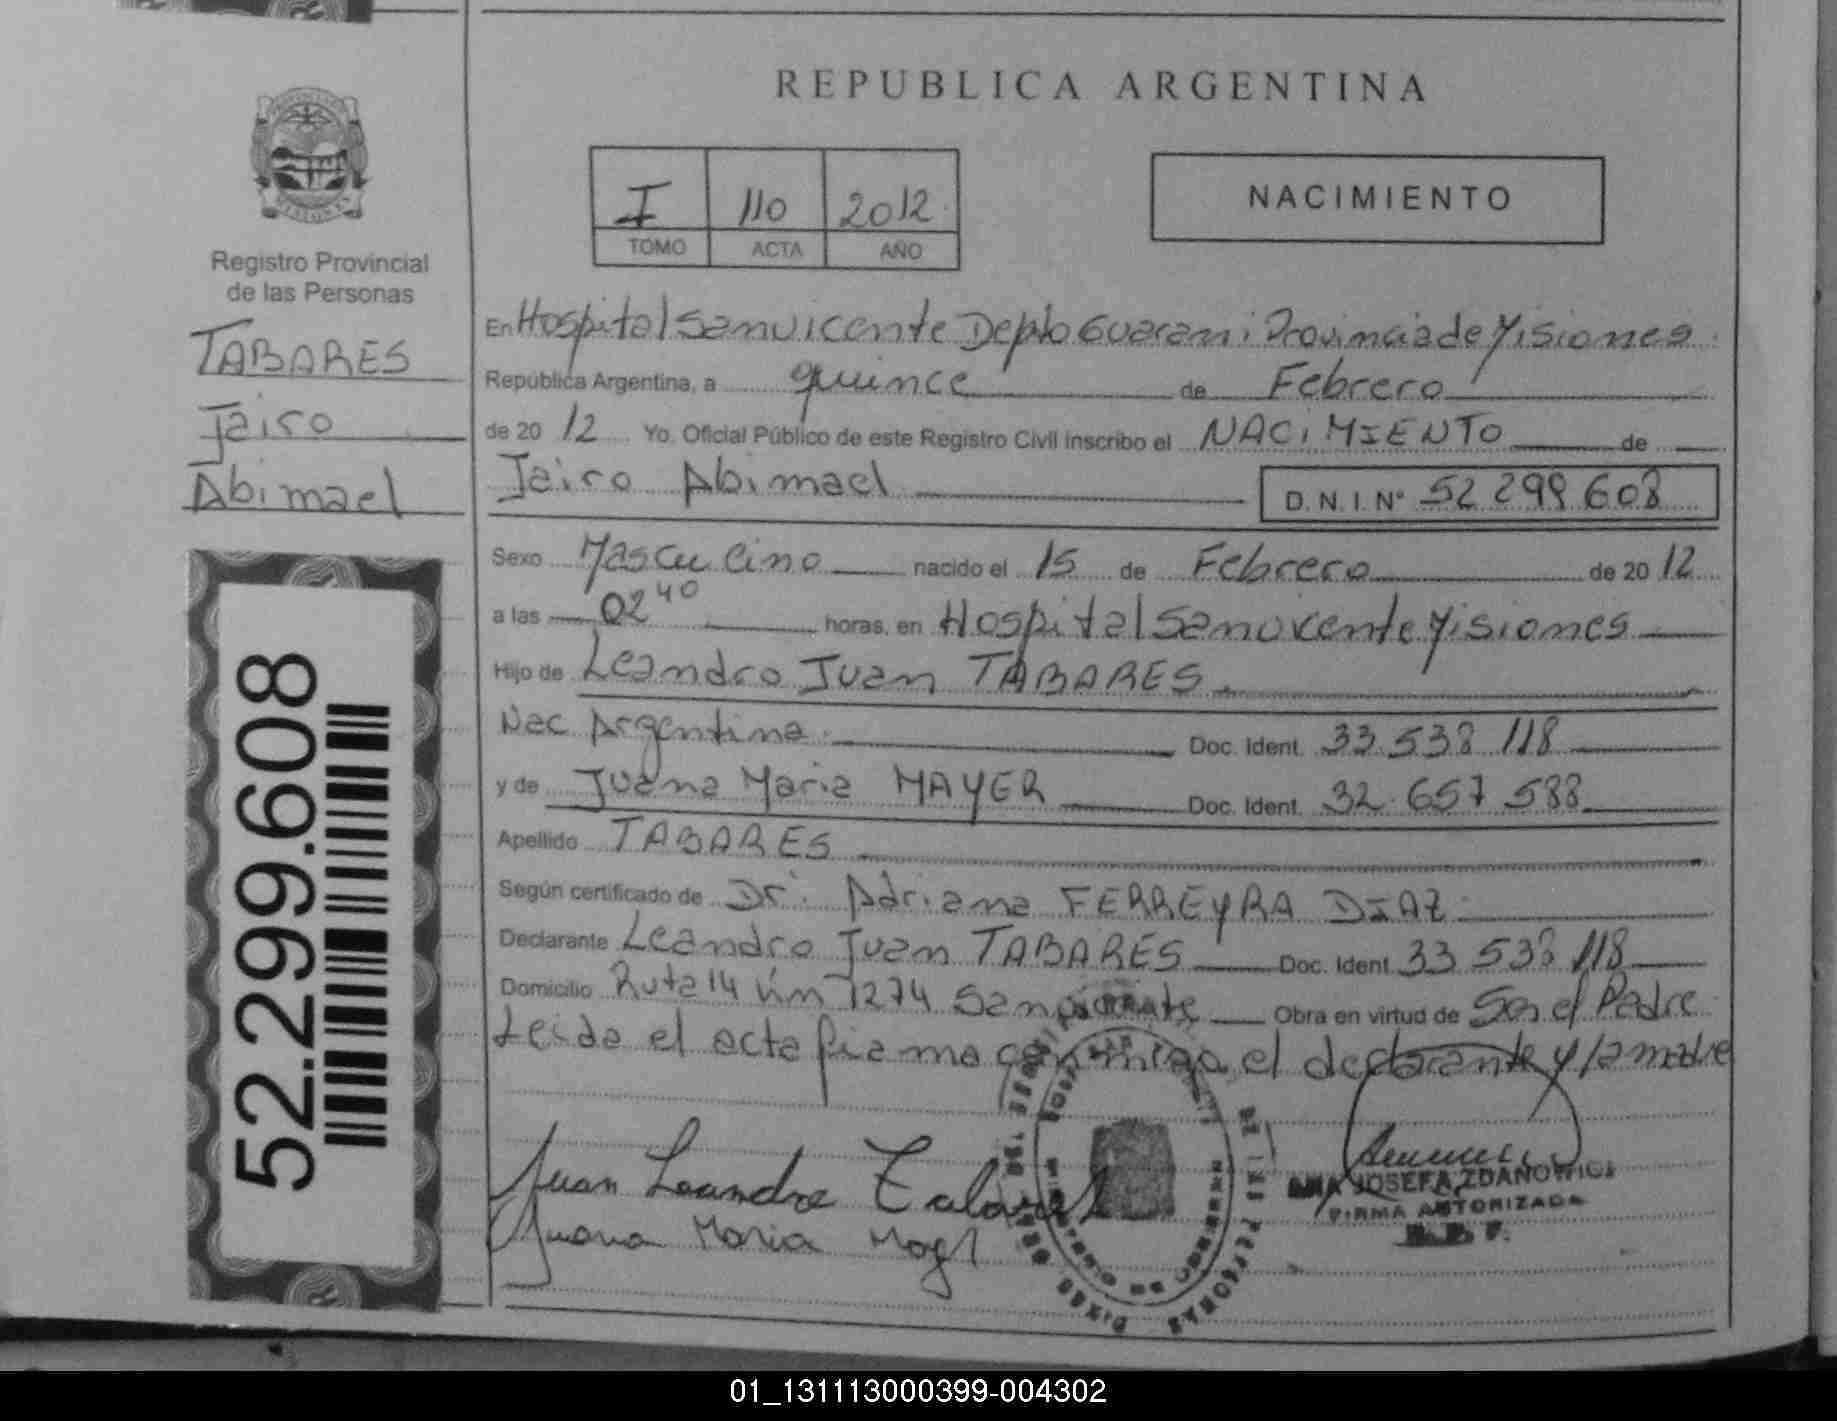 REPUBLICA ARGENTINA
I 110 2012
TOMO ACTA AÑO
NACIMIENTO
Registro Provincial
de las Personas
TABARES
Jairo
Abimael
52.299.608
En Hospital San Vicente Depto Guarani Provincia de Misiones.
República Argentina, a quince de Febrero
de 2012 Yo, Oficial Público de este Registro Civil inscribo el NACIMIENTO de
Jairo Abimael D.N.I. N° 52 299 608
Sexo Masculino nacido el 15 de Febrero de 2012
a las 02 40 horas, en Hospital San Vicente Misiones
Hijo de Leandro Juan TABARES
Nac Argentina. Doc. Ident. 33 538 118
y de Juana Maria MAYER Doc. Ident. 32 657 588
Apellido TABARES
Según certificado de Dr. Adriana FERREYRA DIAZ.
Declarante Leandro Juan TABARES Doc. Ident. 33 538 118
Domicilio Ruta 14 km 1274 San Vicente Obra en virtud de Ser el Padre.
Leida el acta firma conmigo el declarante y la madre
Juan Leandro Tabares
Juana Maria
ANA JOSEFA ZDANOWICZ
FIRMA AUTORIZADA
01_131113000399-004302